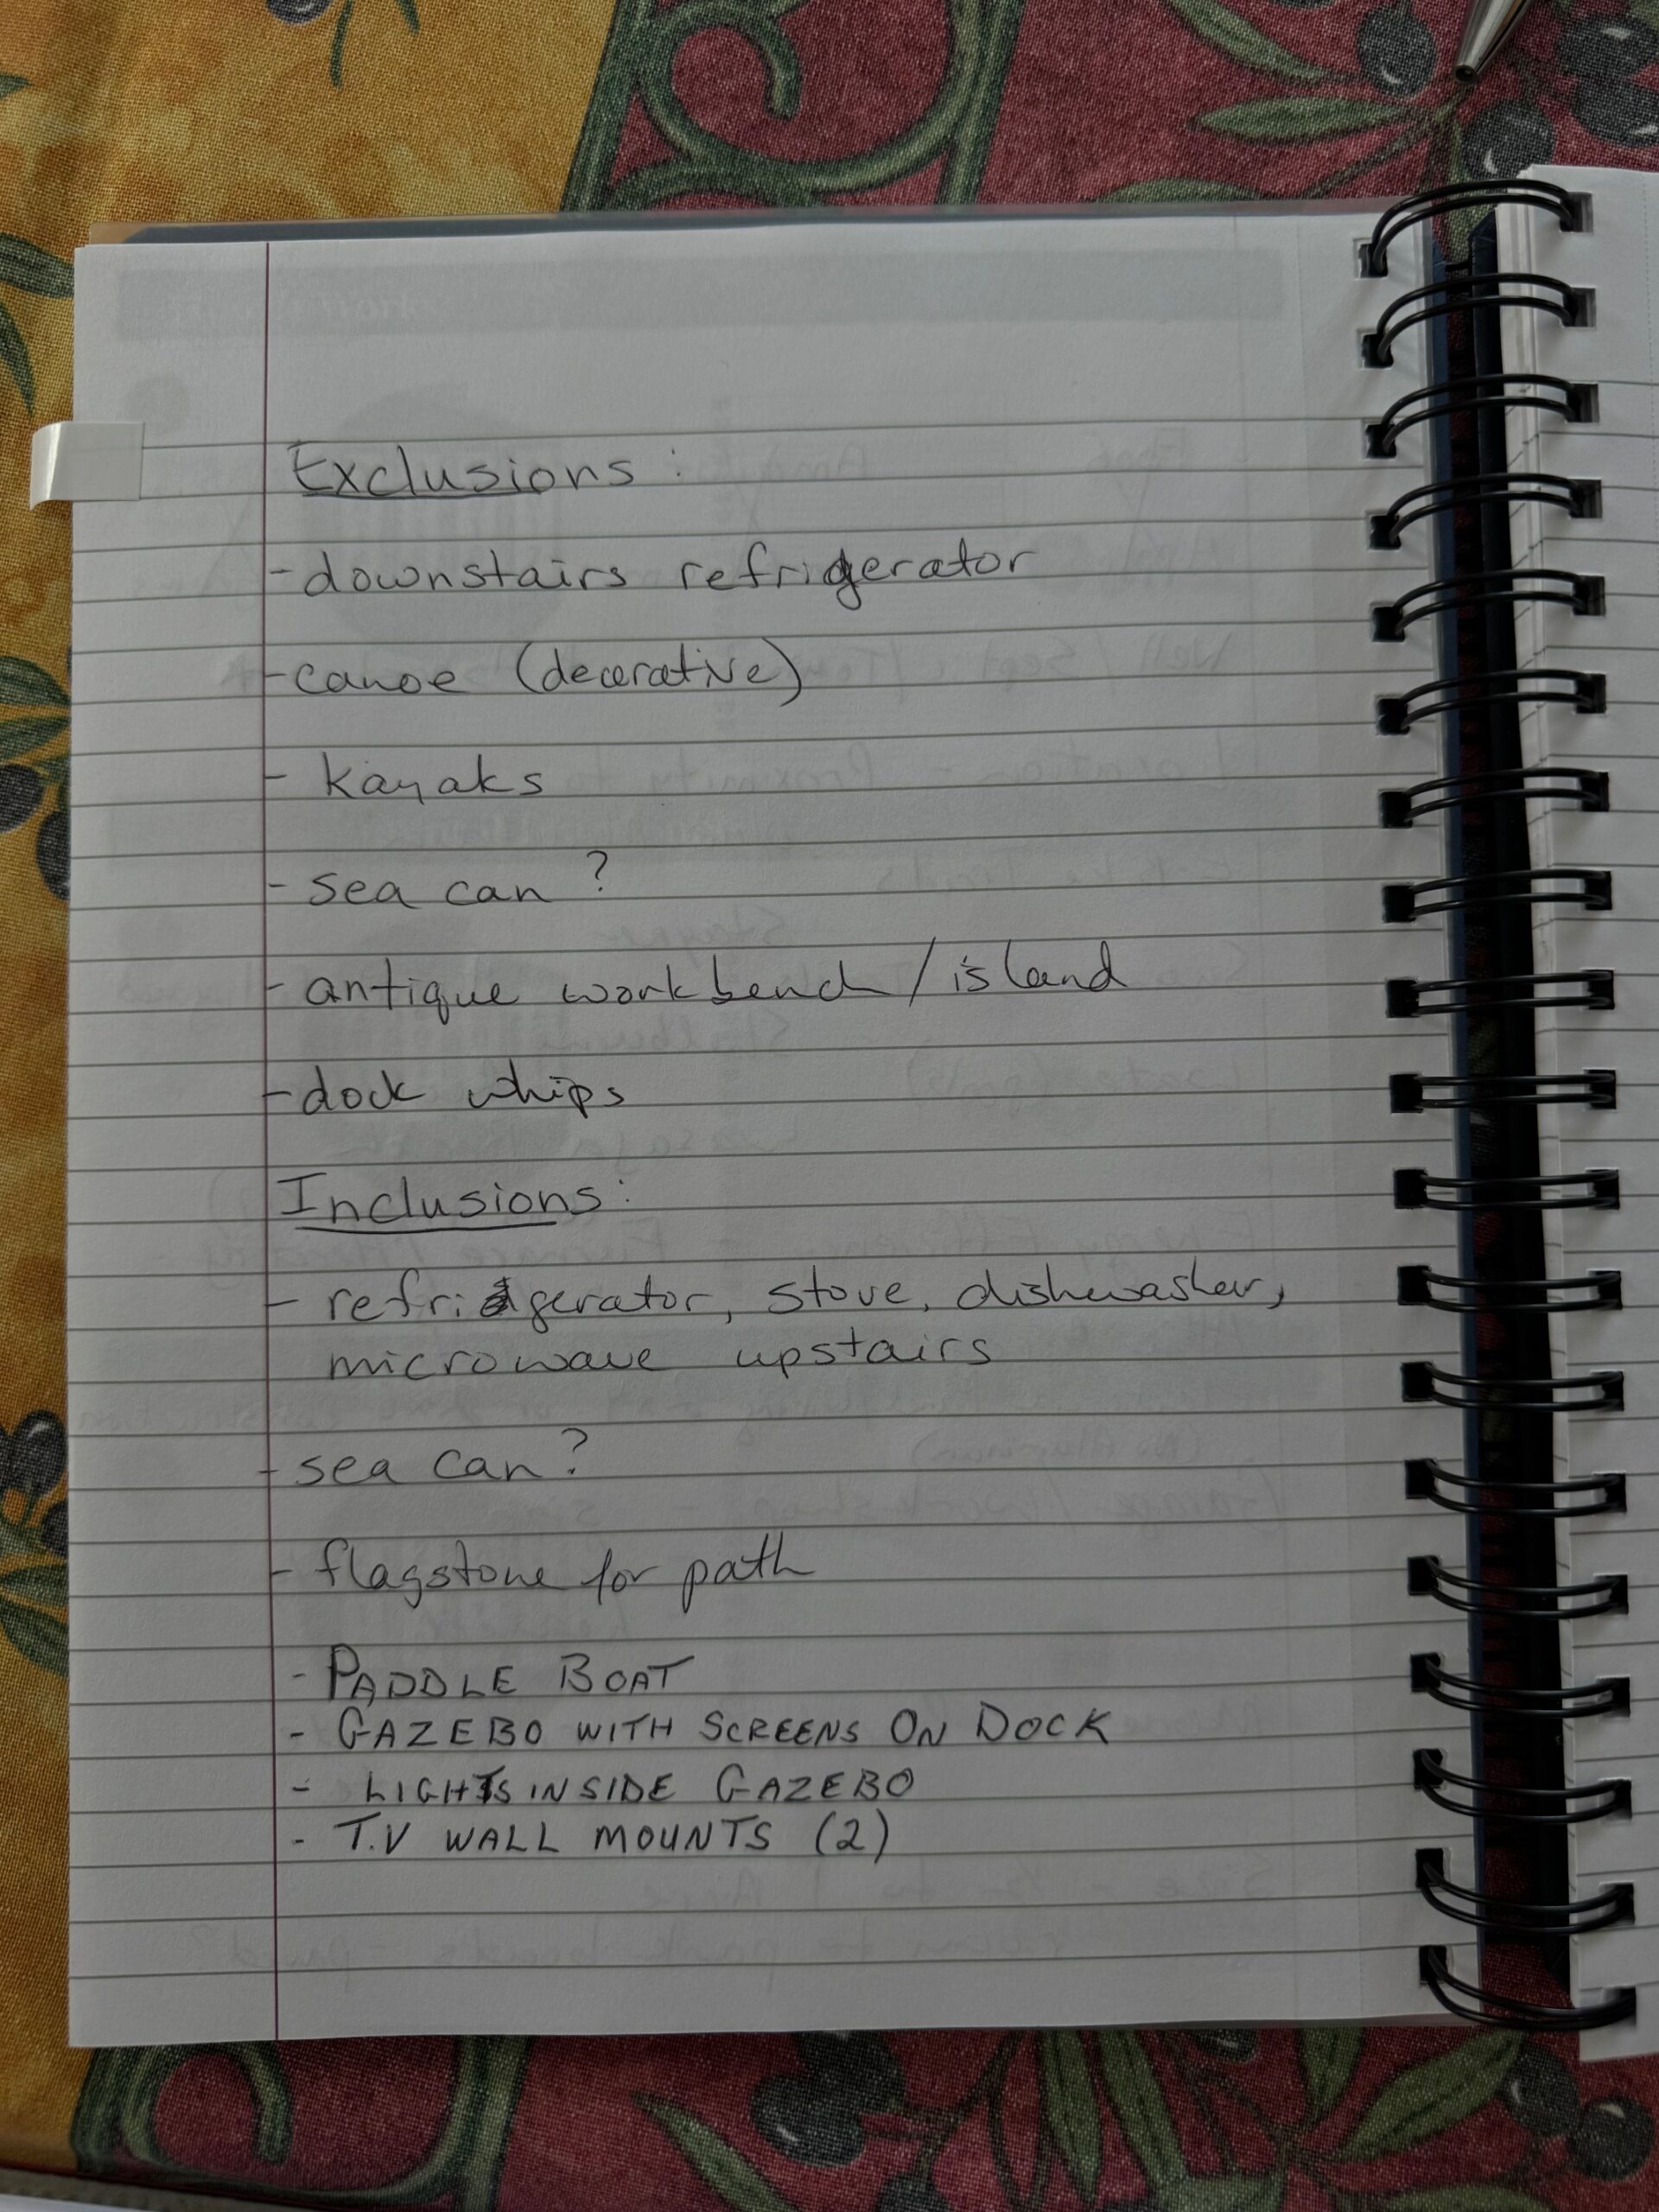 Exclusions:
- downstairs refrigerator
- canoe (decorative)
- kayaks
- sea can?
- antique workbench/island
- dock whips
Inclusions:
- refrigerator, stove, dishwasher,
microwave upstairs
- sea can?
- flagstone for path
- PADDLE BOAT
- GAZEBO WITH SCREENS ON DOCK
- LIGHTS INSIDE GAZEBO
- T.V WALL MOUNTS (2)